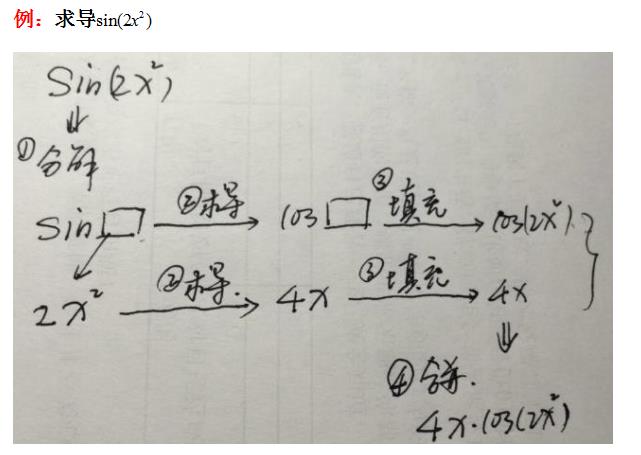 例：求导sin(2x²)
Sin(2x²)
⇓
①分解
Sin□ ②求导→ cos□ ③填充→ cos(2x²)
2x² ②求导.→ 4x ③填充→ 4x
⇓
④合并.
4x·cos(2x²)